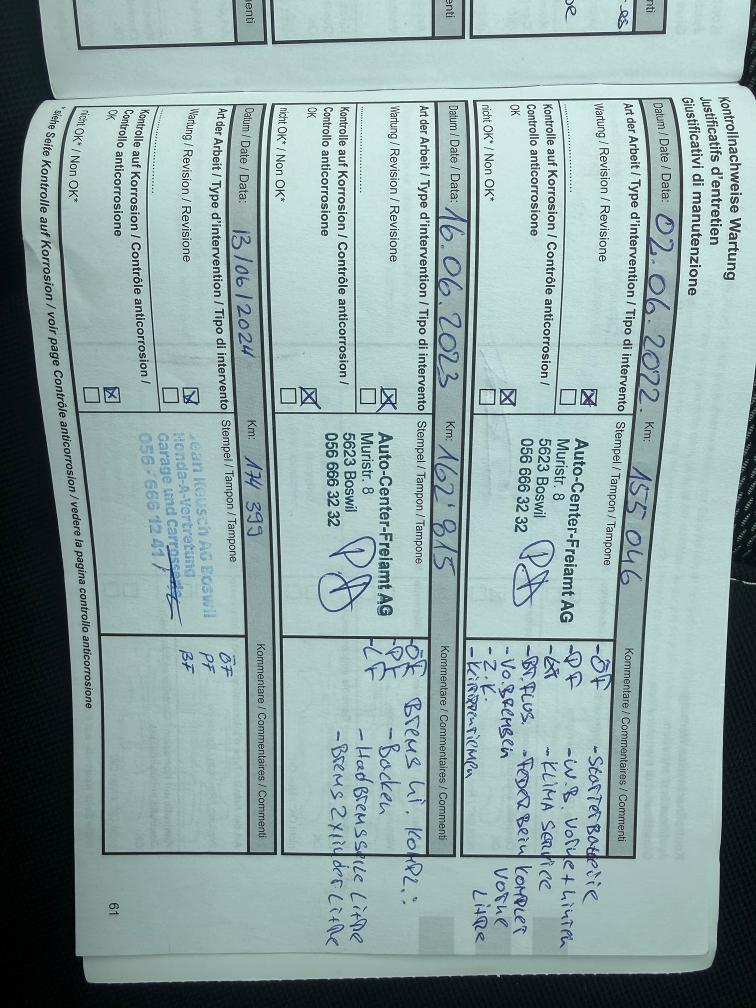 Kontrollnachweise Wartung
Justificatifs d'entretien
Giustificativi di manutenzione
Datum / Date / Data: 02.06.2022. Km: 155 046 Kommentare / Commentaires / Commenti
Art der Arbeit / Type d'intervention / Tipo di intervento Stempel / Tampon / Tampone
Wartung / Revisione
Kontrolle auf Korrosion / Contrôle anticorrosion /
Controllo anticorrosione
OK
nicht OK* / Non OK*
Auto-Center-Freiamt AG
Muristr. 8
5623 Boswil
056 666 32 32
- ÖF - Starter Batterie
- PF - W.B. Vorne + Hinten
- KLIMA SERVICE
- Br. FLUS. - FEDERBEIN KOMPLET
- Vo. BREMSEN VORNE
- Z.K.
- KIRIPPENRIEMEN
Datum / Date / Data: 16.06.2023 Km: 162'815 Kommentare / Commentaires / Commenti
Art der Arbeit / Type d'intervention / Tipo di intervento Stempel / Tampon / Tampone
Wartung / Revisione
Kontrolle auf Korrosion / Contrôle anticorrosion /
Controllo anticorrosione
OK
nicht OK* / Non OK*
Auto-Center-Freiamt AG
Muristr. 8
5623 Boswil
056 666 32 32
- ÖF Brems Hi. KOMPL.:
- PF - Backen
- LF - Hadbremsseile
- Brems Zylinder
Datum / Date / Data: 13/06/2024 Km: 174 399 Kommentare / Commentaires / Commenti
Art der Arbeit / Type d'intervention / Tipo di intervento Stempel / Tampon / Tampone
Wartung / Revisione
Kontrolle auf Korrosion / Contrôle anticorrosion /
Controllo anticorrosione
OK
nicht OK* / Non OK*
Jean Keusch AG Boswil
Honda-A-Vertretung
Garage und Carrosserie
056 - 666 12 41
ÖF
PF
BF
* siehe Seite Kontrolle auf Korrosion / voir page Contrôle anticorrosion / vedere la pagina controllo anticorrosione
61